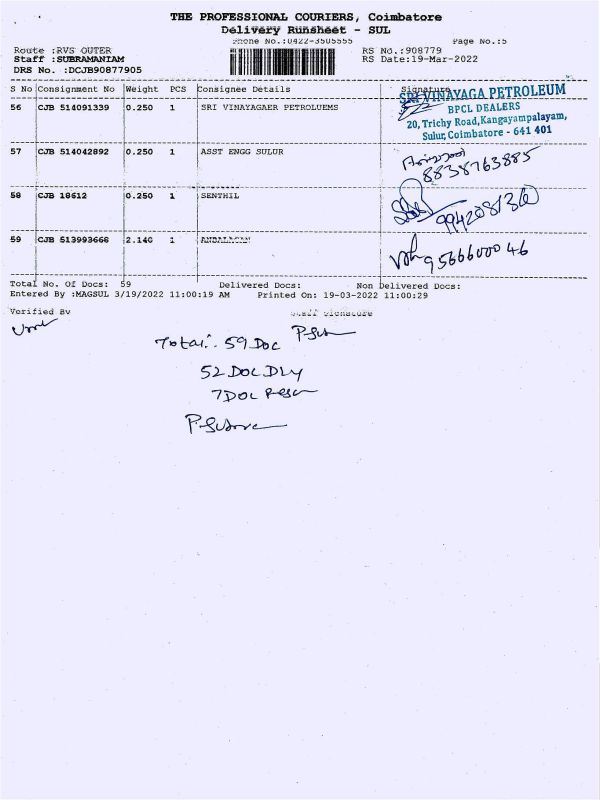 THE PROFESSIONAL COURIERS, Coimbatore
Delivery Runsheet - SUL
Phone No.:0422-3505555 Page No.:5
Route :RVS OUTER RS No.:908779
Staff :SUBRAMANIAM RS Date:19-Mar-2022
DRS No. :DCJB90877905
S No Consignment No Weight PCS Consignee Details Signature
56 CJB 514091339 0.250 1 SRI VINAYAGAER PETROLUEMS
SRI VINAYAGA PETROLEUM
BPCL DEALERS
20, Trichy Road, Kangayampalayam,
Sulur, Coimbatore - 641 401
57 CJB 514042892 0.250 1 ASST ENGG SULUR
8838763885
58 CJB 18612 0.250 1 SENTHIL
9942081360
59 CJB 513993668 2.140 1
9566600046
Total No. Of Docs: 59 Delivered Docs: Non Delivered Docs:
Entered By :MAGSUL 3/19/2022 11:00:19 AM Printed On: 19-03-2022 11:00:29
Verified By Staff Signature
Total: 59 Doc
52 Doc Dly
7 Doc